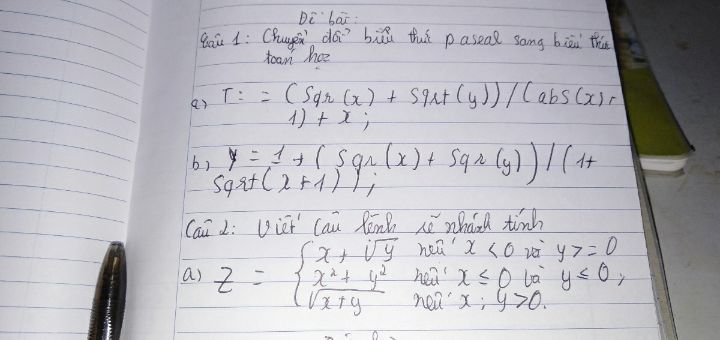 Đề bài:
Câu 1: Chuyển đổi biểu thức pascal sang biểu thức
toán học
a) T: = (Sqr(x) + Sqrt(y))/(abs(x)+
1) + x;
b) Y = 1 + (Sqr(x) + Sqr(y))/(1+
Sqrt(x+1));
Câu 2: Viết câu lệnh rẽ nhánh tính
x + √y nếu x < 0 và y >= 0
a) Z = { x² + y² nếu x ≤ 0 và y ≤ 0;
√x+y nếu x; y > 0.